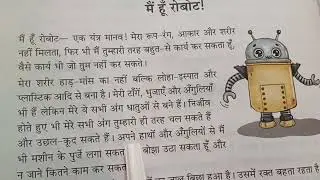 मैं हूँ रोबोट!
मैं हूँ रोबोट— एक यंत्र मानव! मेरा रूप-रंग, आकार और शरीर
नहीं मिलता, फिर भी मैं तुम्हारी तरह बहुत-से कार्य कर सकता हूँ,
वैसे कार्य भी जो तुम नहीं कर सकते।
मेरा शरीर हाड़-मांस का नहीं बल्कि लोहा-इस्पात और
प्लास्टिक आदि से बना है। मेरी टाँगें, भुजाएँ और अँगुलियाँ
भी हैं लेकिन मेरे ये सभी अंग धातुओं से बने हैं। निर्जीव
होते हुए भी मेरे सभी अंग तुम्हारी ही तरह चल सकते हैं
और उछल-कूद सकते हैं। अपने हाथों और अँगुलियों से मैं
भी मशीन के पुर्जे लगा सकता बोझा उठा सकता हूँ और
न जाने कितने काम कर सकता
जाल बिछा हुआ है। उसमें रक्त बहता रहता है